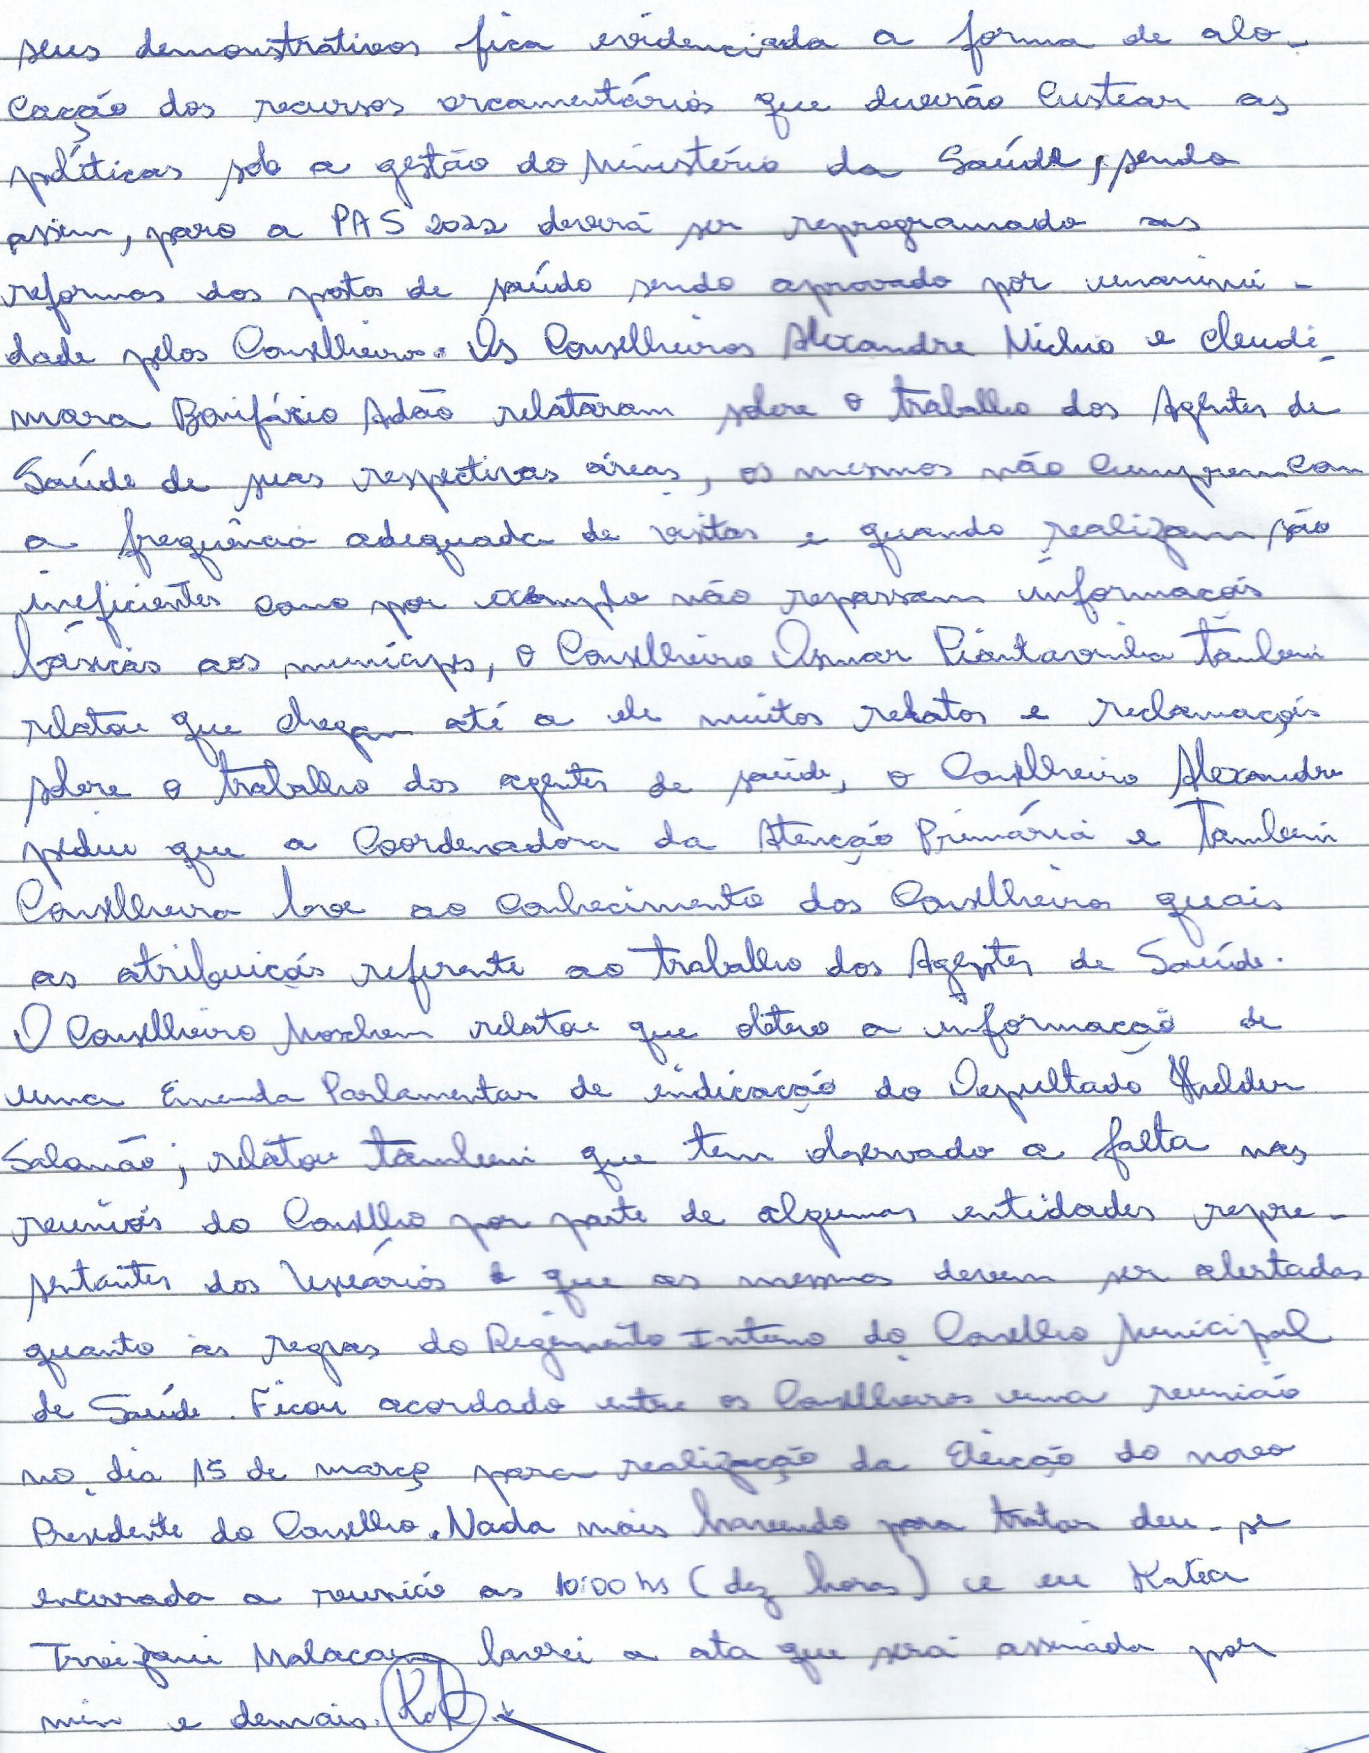 seus demonstrativos fica evidenciada a forma de alo-
cação dos recursos orcamentários que deverão custear as
políticas sob a gestão do Ministério da Saúde, sendo
assim, para a PAS 2022 deverá ser reprogramado as
reformas dos postos de saúde sendo aprovado por unanimi-
dade pelos Conselheiros. Os Conselheiros Alexandre e Cleudi-
mara Bonifácio Adão relataram sobre o trabalho dos Agentes de
Saúde de suas respectivas áreas, os mesmos não cumprem com
a frequência adequada de visitas e quando realizam são
ineficientes como por exemplo não repassam informações
básicas aos munícipes, o Conselheiro Osmar também
relatou que chegam até a ele muitos relatos e reclamações
sobre o trabalho dos agentes de saúde, o Conselheiro Alexandre
pediu que a Coordenadora da Atenção Primária e também
Conselheira leve ao conhecimento dos Conselheiros quais
as atribuições referente ao trabalho dos Agentes de Saúde.
O Conselheiro Moschem relatou que obteve a informação de
uma Emenda Parlamentar de indicação do Deputado Helder
Salomão; relatou também que tem observado a falta nas
reuniões do Conselho por parte de algumas entidades repre-
sentantes dos Usuários e que as mesmas devem ser alertadas
quanto às regras do Regimento Interno do Conselho Municipal
de Saúde. Ficou acordado entre os Conselheiros uma reunião
no dia 15 de março para realização da Eleição do novo
Presidente do Conselho. Nada mais havendo para tratar deu-se
encerrada a reunião as 10:00 hs (dez horas) e eu Katia
lavrei a ata que será assinada por
mim e demais.